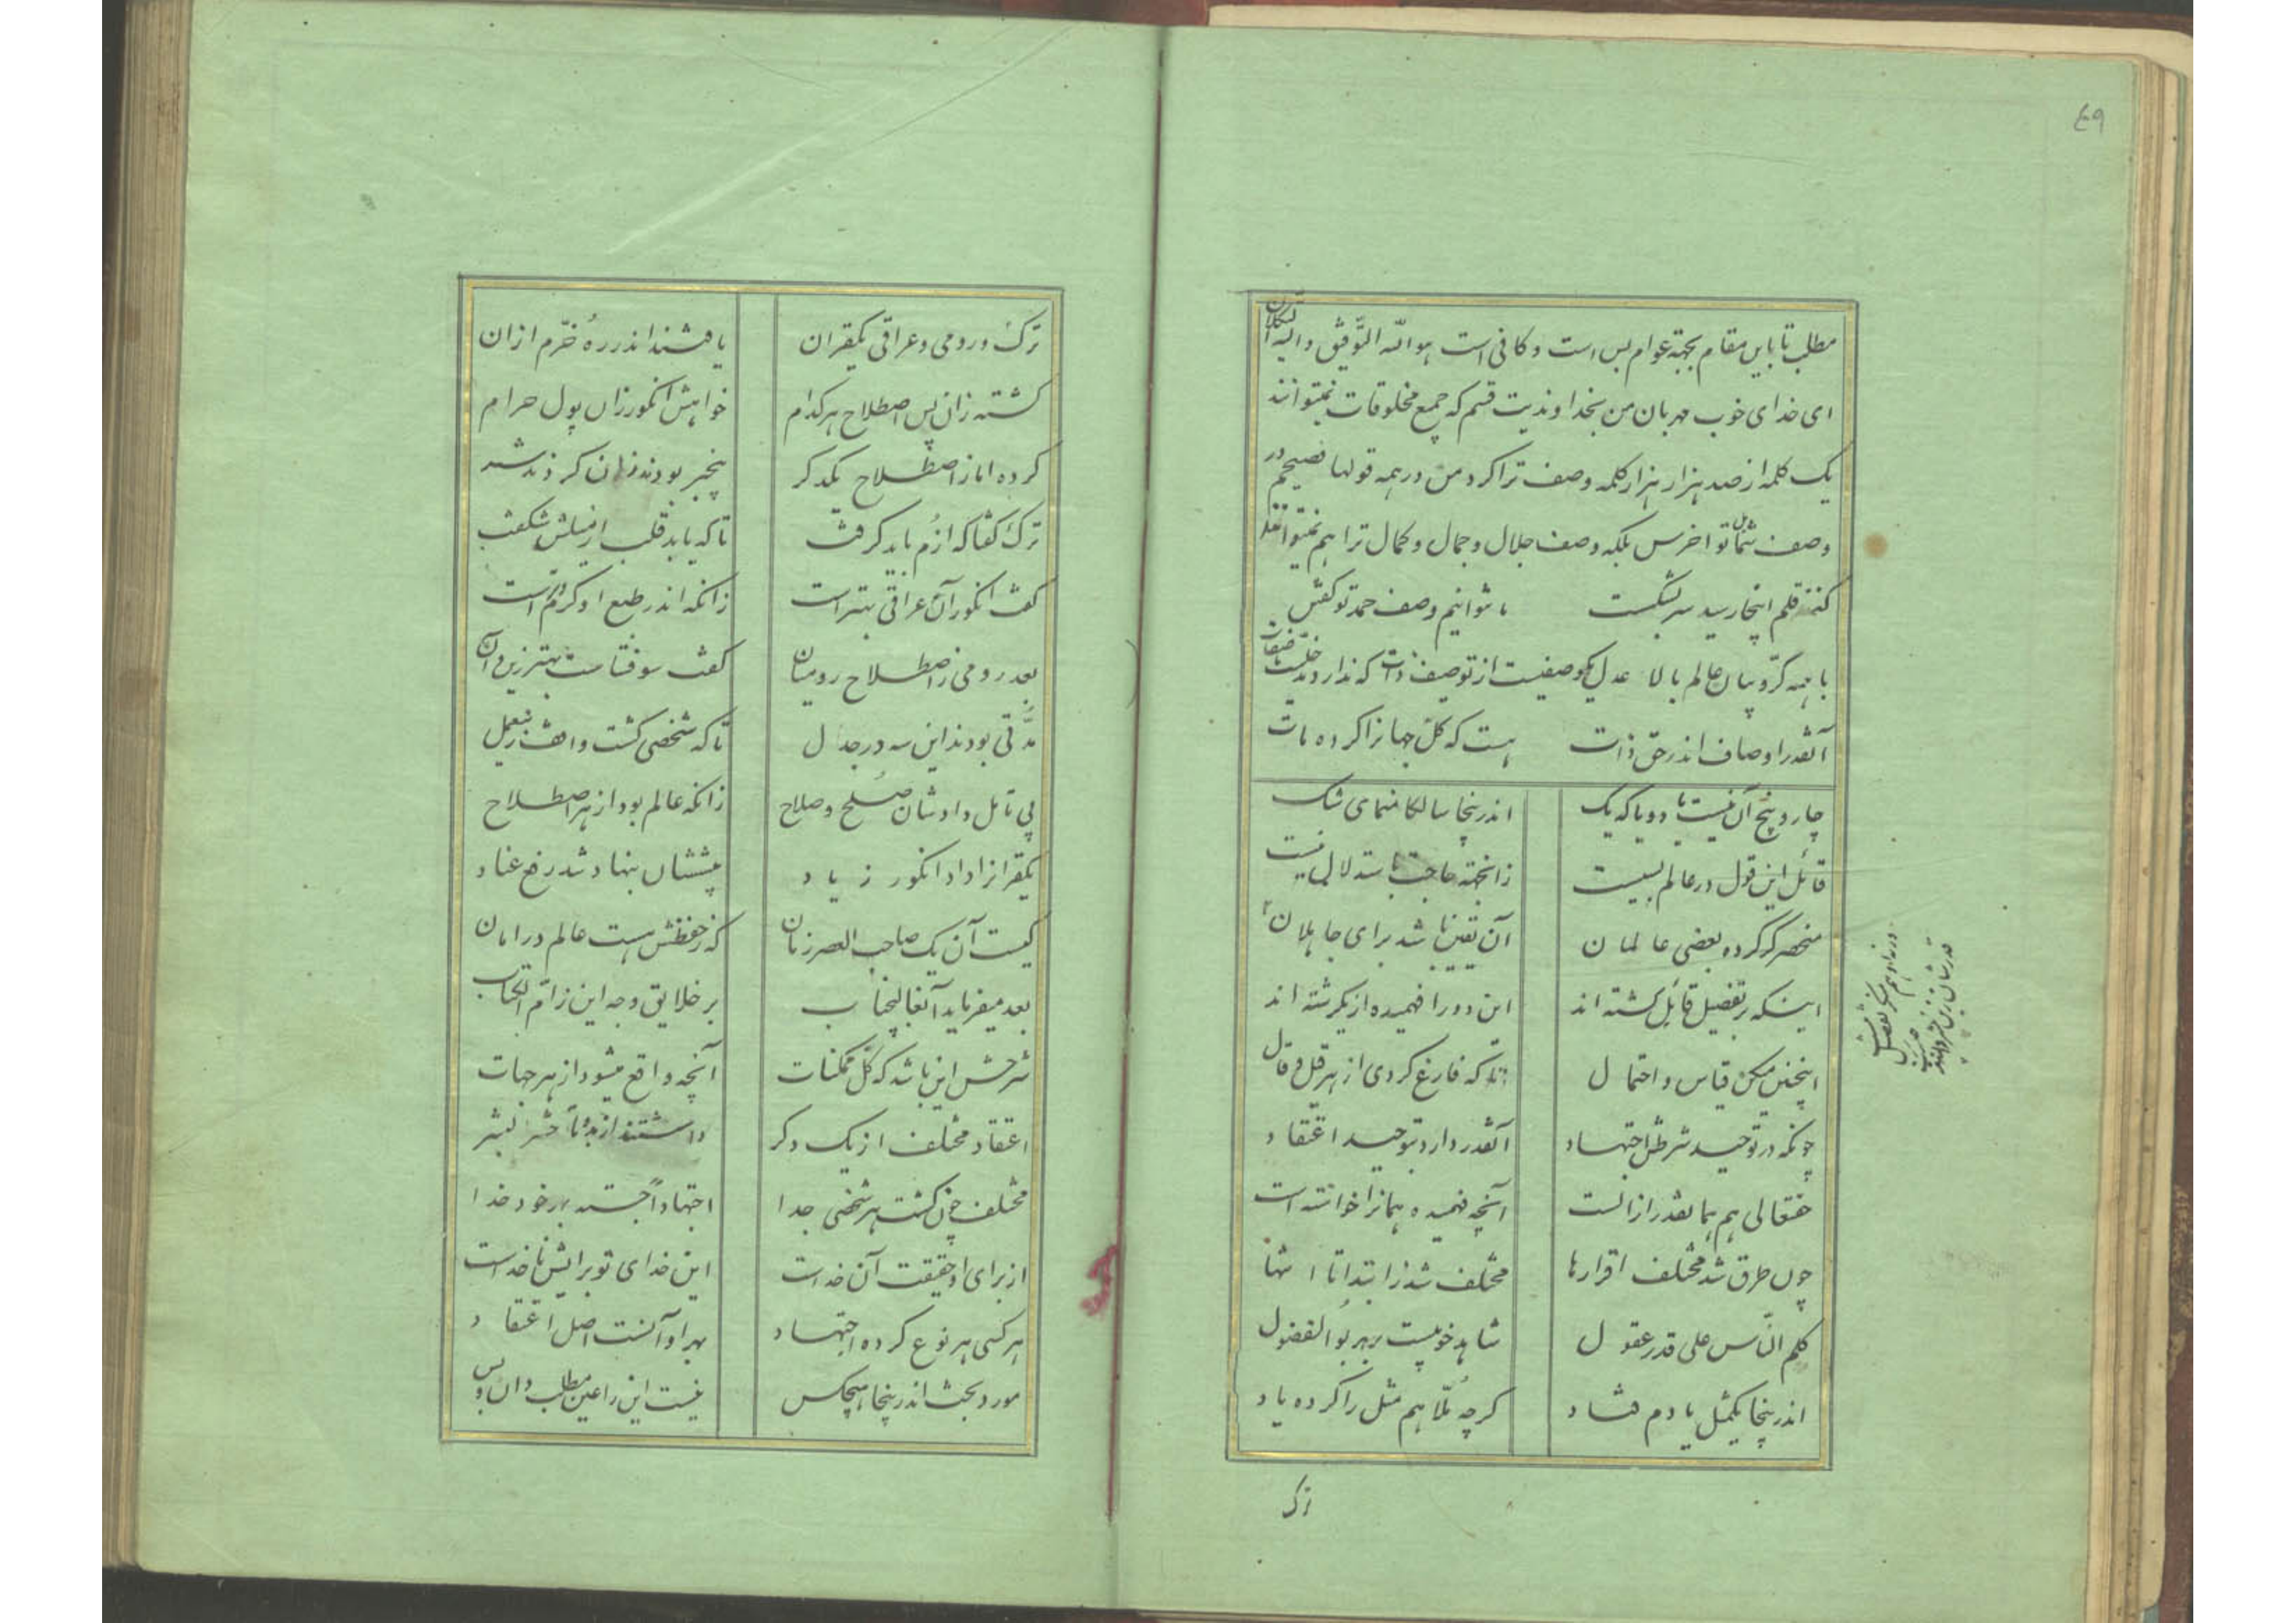 ٤٩
مطلب تا باین مقام بجهة عوام بس است و کافی است هو الله التوفیق والیه التکلان
ای خدای خوب مهربان من بخداوندیت قسم که جمیع مخلوقات نمیتوانند
یک کلمه از صد هزار هزار کلمه وصف ترا کرد من در همه قولها فصیحم در
وصف شمائل تو اخرس بلکه وصف جلال و جمال و کمال ترا هم نمیتوانند
کنند قلم اینجا رسید سر بشکست ما نتوانیم وصف حمد تو گفتن
با همه کرّوبیان عالم بالا عدل یکوصفیست از توصیف ذات که ندارد
آنقدر اوصاف اندر حق ذات هست که کل جهانرا کرده مات
چار و پنج آن نیست یا دو یا که یک اندر اینجا سالکا منمای شک
قائل این قول در عالم بسیست زانجهة حاجت باستدلالی نیست
منحصر گر کرده بعضی عالمان آن یقین باشد برای جاهلان
اینکه بر تفضیل قائل گشته اند این دو را فهمیده از یکرشته اند
اینچنین میکن قیاس و احتمال تا که فارغ گردی از هر قیل و قال
چونکه در توحید شرطش اجتهاد آنقدر دارد بتوحید اعتقاد
حقتعالی هم بهمانقدر از الست آنچه فهمیده همانرا خواسته است
چون طرق شد مختلف اقرارها مختلف شد ز ابتدا تا انتها
کلم النّاس علی قدر عقول شاهد خوبیست بهر بوالفضول
اندر اینجا یکمثل یادم فتاد گرچه ملّا هم مثل را کرده یاد
ترک
ترک و رومی و عراقی یکقران یافتند اندر رهٔ خرّم ازان
گشته زان پس اصطلاح هر کدام خواهش انگور زان پول حرام
کرده اما ز اصطلاح یکدگر بیخبر بودند زان گردند شر
ترک گفتا که ازُم باید گرفت تا که یابد قلب از میلش شگفت
گفت انگور آن عراقی بهتر است زانکه اندر طبع او گرم و تر است
بعد رومی ز اصطلاح رومیان گفت سوفتا ست بهتر زین و آن
مدّتی بودند این سه در جدل تا که شخصی گشت واقف زین عمل
بی تامل داد شان صلح و صلاح زانکه عالم بود از هر اصطلاح
یکقرانرا داد انگور زیاد پیششان بنهاد شد رفع عناد
کیست آن یک صاحب العصر زمان که ز حفظش هست عالم در امان
بعد میفرماید آنعالیجناب بر خلایق وجه این ز امّ الکتاب
شرحش این باشد که کلّ ممکنات آنچه واقع میشود از هر جهات
اعتقاد مختلف از یک دگر داشتند از بدو تا حشر بشر
مختلف چون گشت هر شخصی جدا اجتهاداً جسته بهر خود خدا
از برای او حقیقت آن خداست این خدای تو برایش ناخداست
هر کسی هر نوع کرده اجتهاد بهر او آنست اصل اعتقاد
مورد بحث اندر اینجا هیچکس نیست این را عین مطلب دان و بس